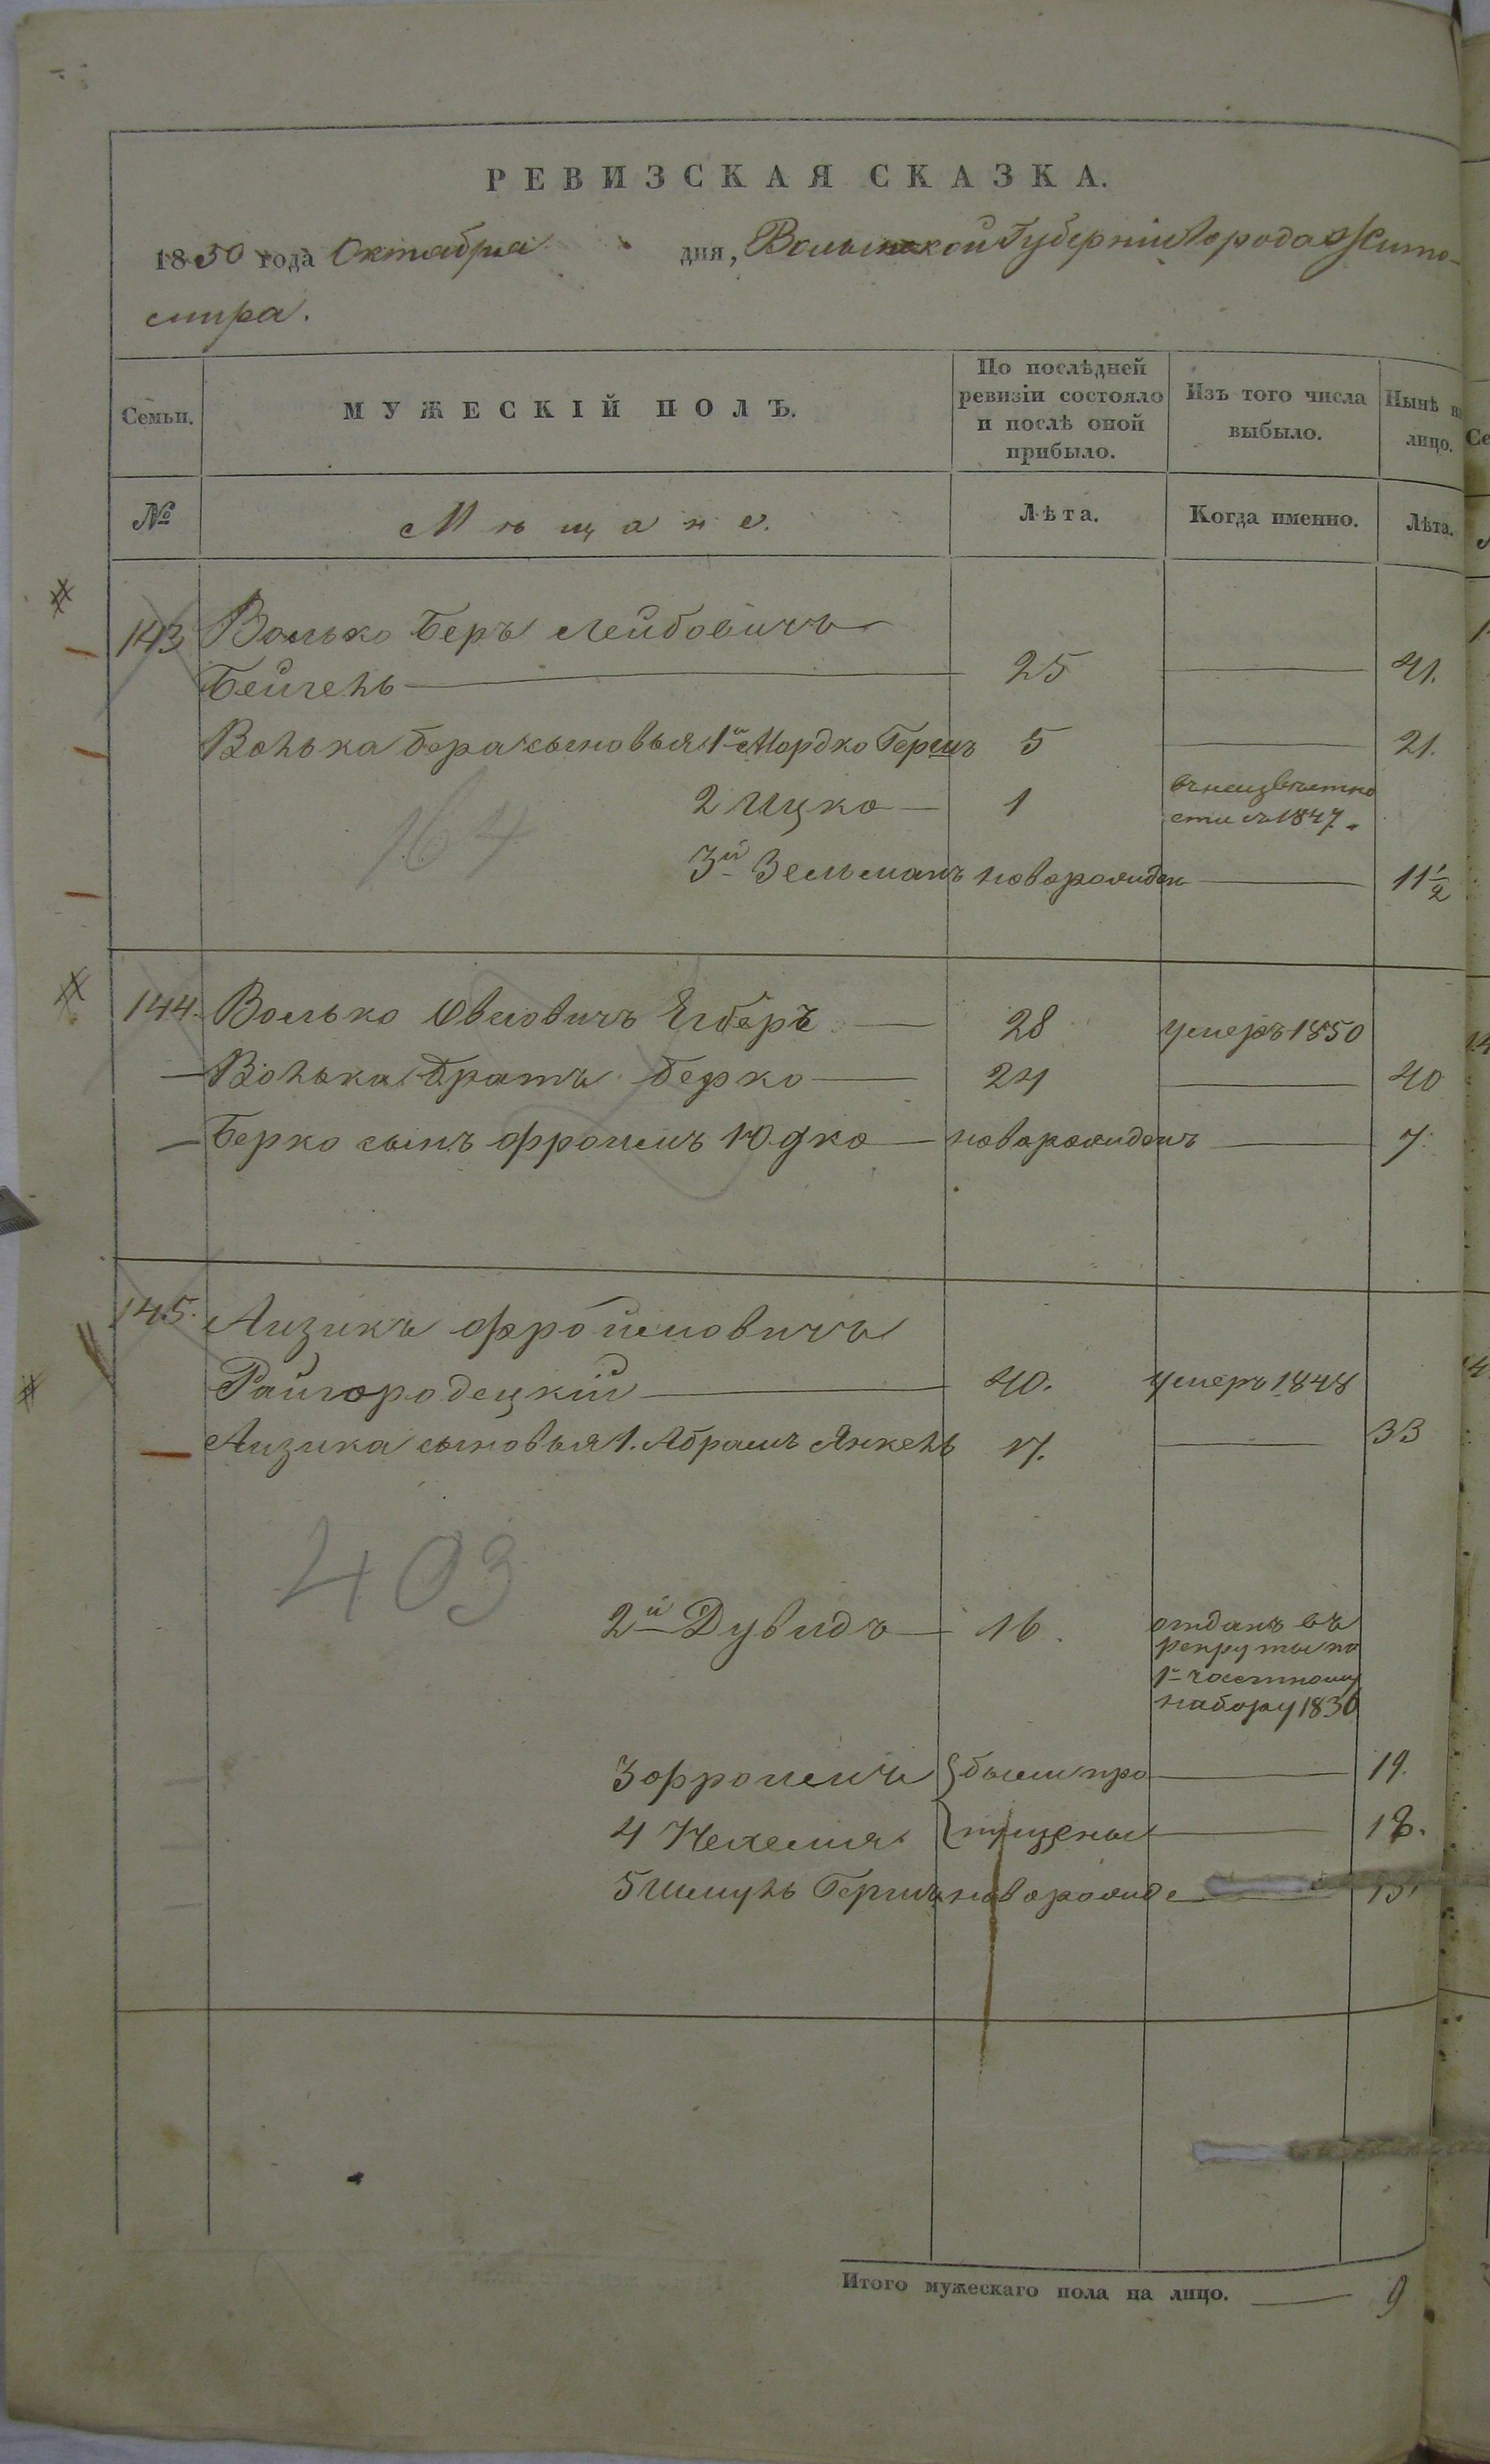 РЕВИЗСКАЯ СКАЗКА.
1850 года Октября дня, Волынской Губерніи Города Жито-
мира.
Семьи. МУЖЕСКІЙ ПОЛЪ. По послѣдней ревизіи состояло и послѣ оной прибыло. Изъ того числа выбыло. Нынѣ на лицо.
№ Мѣщане. Лѣта. Когда именно. Лѣта.
143 Волько Беръ Лейбовичъ
Бейгель 25 41.
Волька Бера сыновья 1й Мордко Гершъ 5 21.
2 Ицко 1 въ неизвѣстно
сти съ 1847.
164
3й Зельманъ новорожден 11 1/2
144. Волько Овсіовичъ 28 умеръ 1850
Волька братъ Берко 24 40
Берко сынъ Фроимъ Юдко новорожденъ 7.
145. Аизикъ Фроимовичъ
Райгородецкій 40. умеръ 1848
Аизика сыновья 1. Абрамъ Янкель 17. 33
403
2й Дувидъ 16. отданъ въ
рекруты по
1й частному
набору 1836
3 Фроимъ были про 19.
4 Нехемія пущены 18.
5 Шмуль Гершъ новорожде 15.
Итого мужескаго пола на лицо. 9